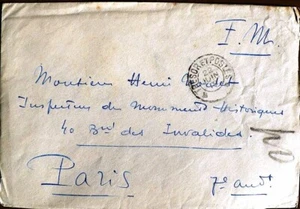 F. M.
TRESOR ET POSTES
Monsieur Henri
Inspecteur des Monuments Historiques
40 Bvd des Invalides
Paris
7e arrdt